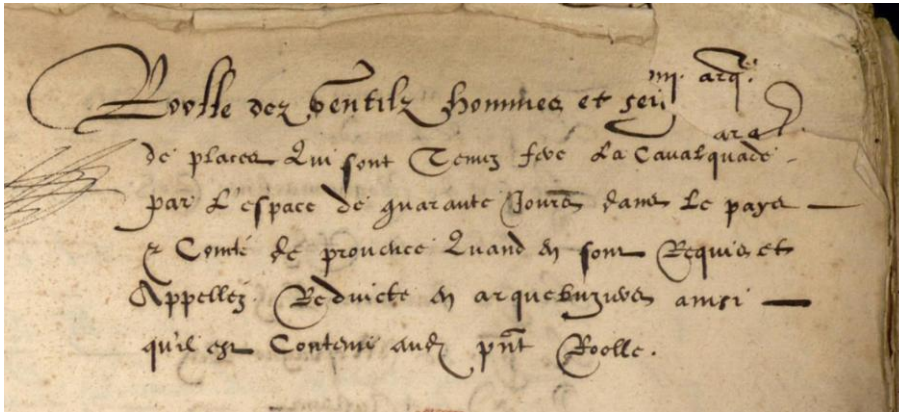 iiij. arq.
Roolle dez Gentilz hommes et seig
arq
de places Qui sont Tenuz fere La Cavalquade
par L'espace de quarante Jours dans Le pays
& Comté de provence Quand en sont Requis et
Appellez Reduicte en arquebuziers ainsi
qu'il est Contenu aud pnt Roolle.